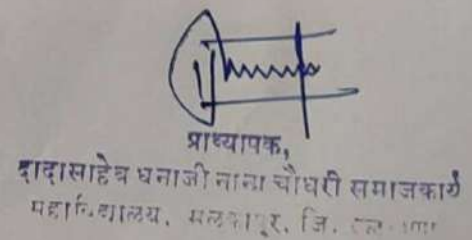 प्राध्यापक,
दादासाहेब धनाजी नाना चौधरी समाजकार्य
महाविद्यालय, मलकापूर, जि.